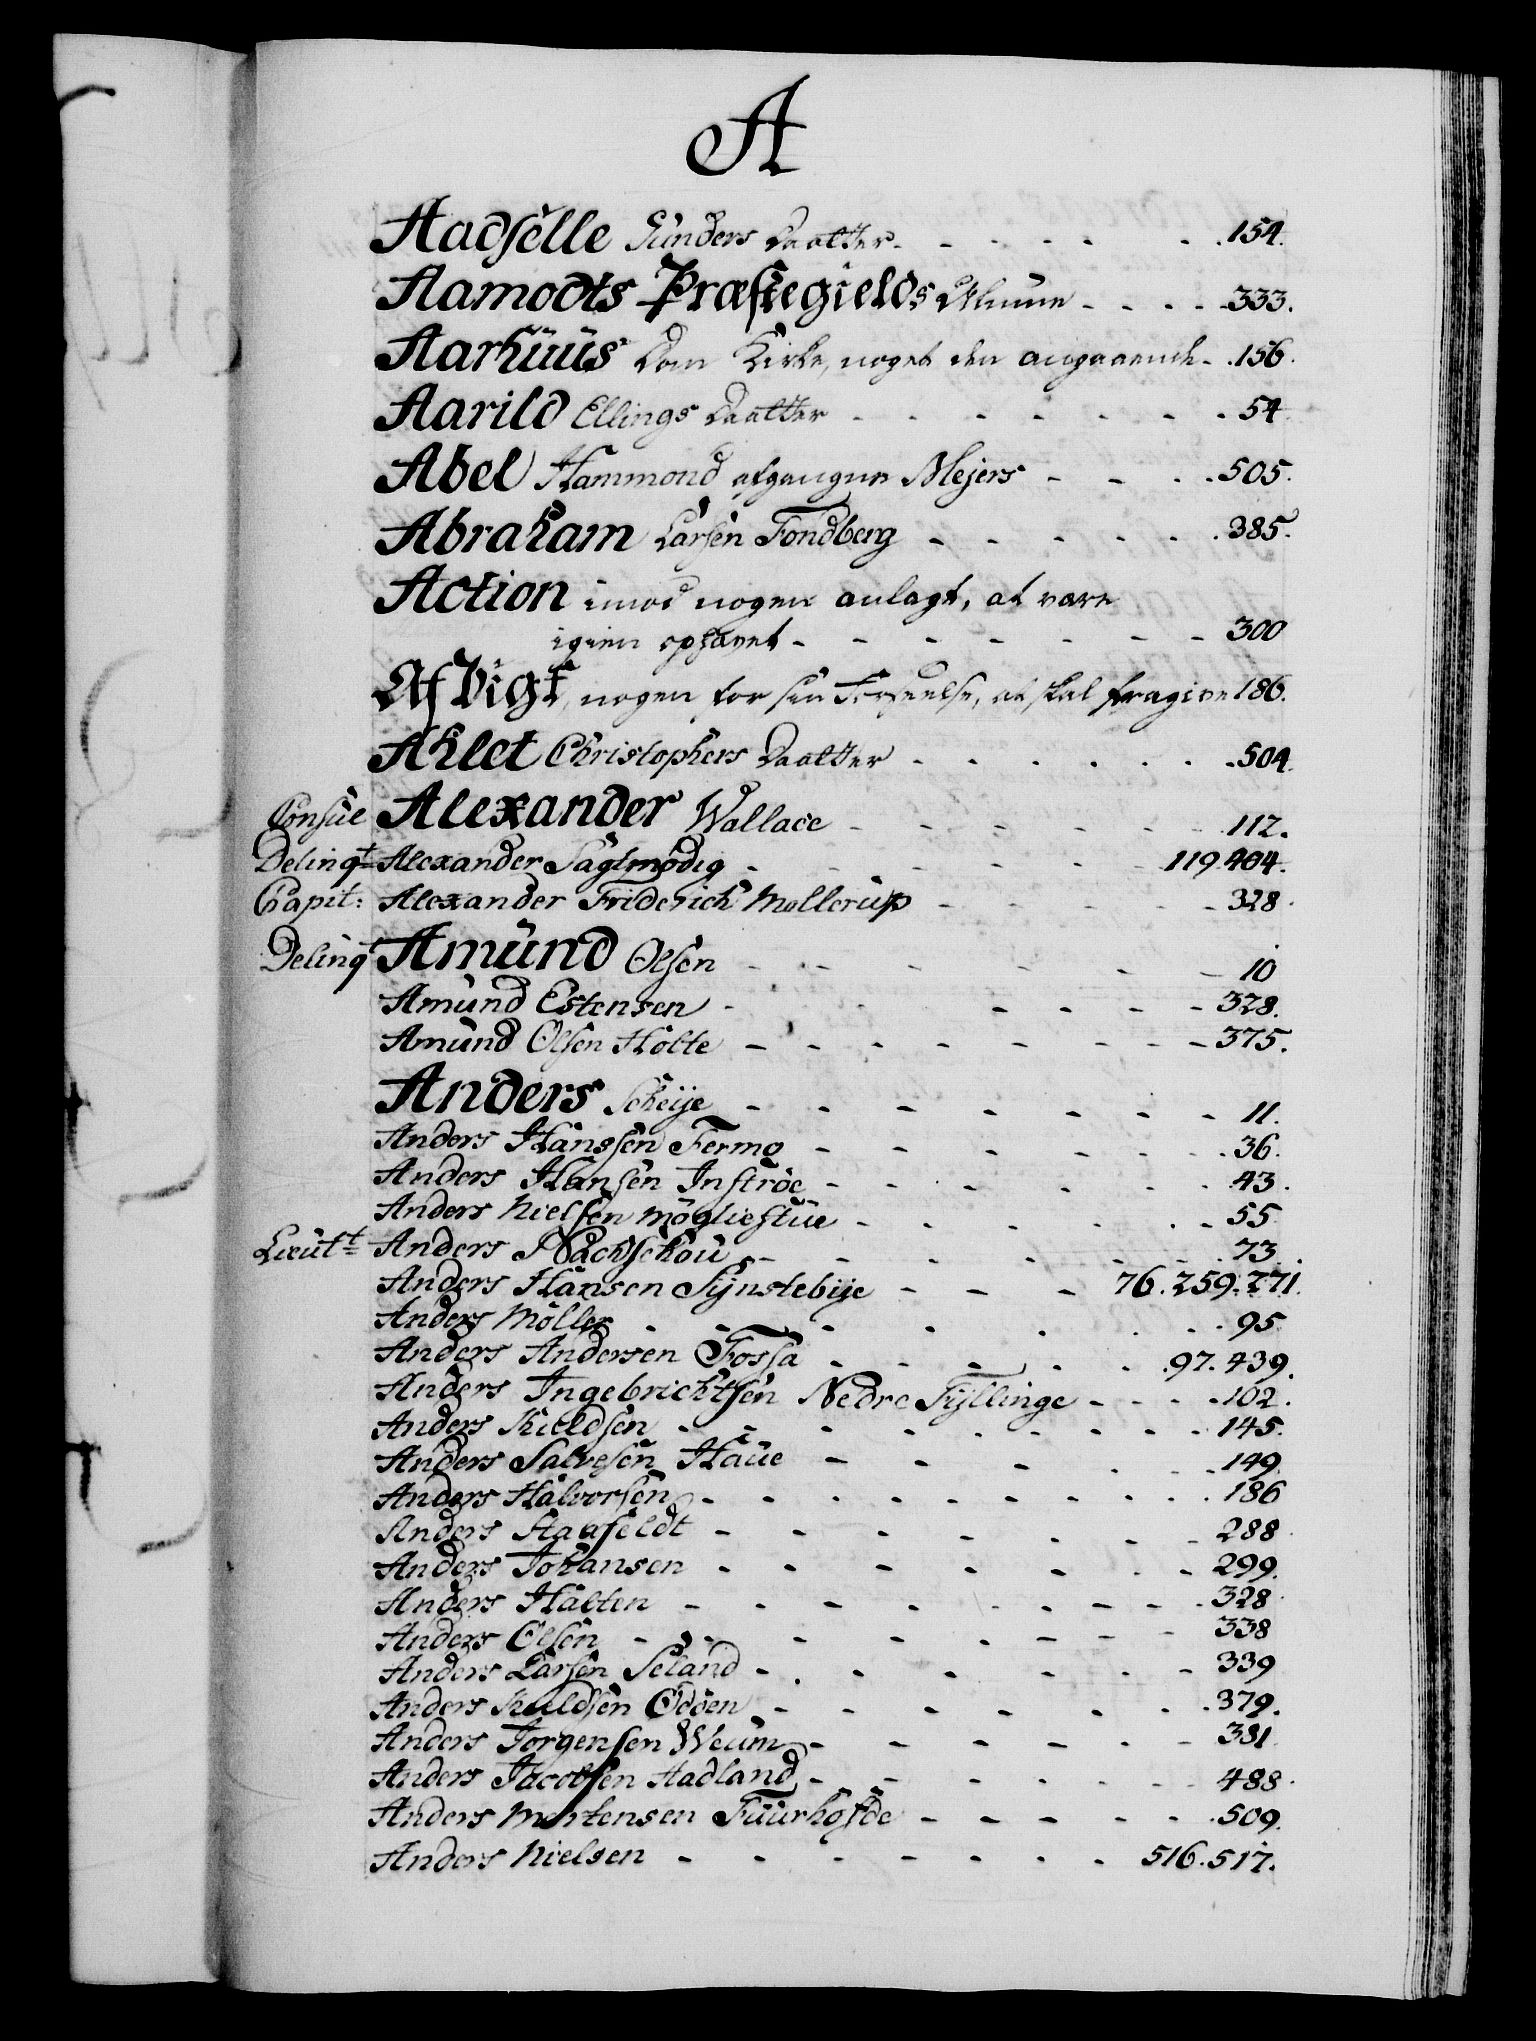 A
Aadselle Gunders Daatter - - - - - - 154.
Aamodts Præstegields Almue - - - - 333.
Aarhuus Dom Kirke, noget den angaaende - - 156.
Aarild Ellings Daatter - - - - - - 54.
Abel Hammond afgangne Mejers - - - - 505.
Abraham Larsen Fondberg - - - - - - 385.
Action imod nogen anlagt, at være
igien ophævet - - - - - - - 300
Afbigt, nogen for sin Forseelse, at skal fragive 186.
Ahlet Christophers Daatter - - - - - - 504.
Consul Alexander Wallace - - - - - - 112.
Delinqt Alexander Sagtmødig - - - - - 119.404.
Capit: Alexander Friderich Mollerup - - - - - 328.
Delinqt Amund Olsen - - - - - - 10
Amund Estensen - - - - - - 328.
Amund Olsen Holte - - - - - - - - 375.
Anders Scheije - - - - - - - 11.
Anders Hanssen Fermo - - - - - - 36.
Anders Hansen Instrøe - - - - - - 43.
Anders Nielsen Møgliestue - - - - - - 55
Lieutt Anders Nachschou - - - - - - 73.
Anders Hansen Sijnstebije - - - 76.259.271.
Anders Møller - - - - - - - 95
Anders Andersen Fossa - - - - - 97.439.
Anders Ingebrichtsen Nedre Fijllinge - - - - 102.
Anders Kieldsen - - - - - - - - 145.
Anders Salvesen Haue - - - - - 149.
Anders Halvorsen - - - - - - - - 186
Anders Staafeldt - - - - - - - 288.
Anders Johansen - - - - - - - 299.
Anders Halten - - - - - - - - 328.
Anders Olsen - - - - - - - 338
Anders Larsen Seland - - - - - - 339
Anders Kieldsen Odden - - - - - - 379.
Anders Jørgensen Weum - - - - - - 381
Anders Jacobsen Hadland - - - - - - 488.
Anders Mortensen Fuurhofde - - - - - - 509.
Anders Nielsen - - - - - - - 516.517.